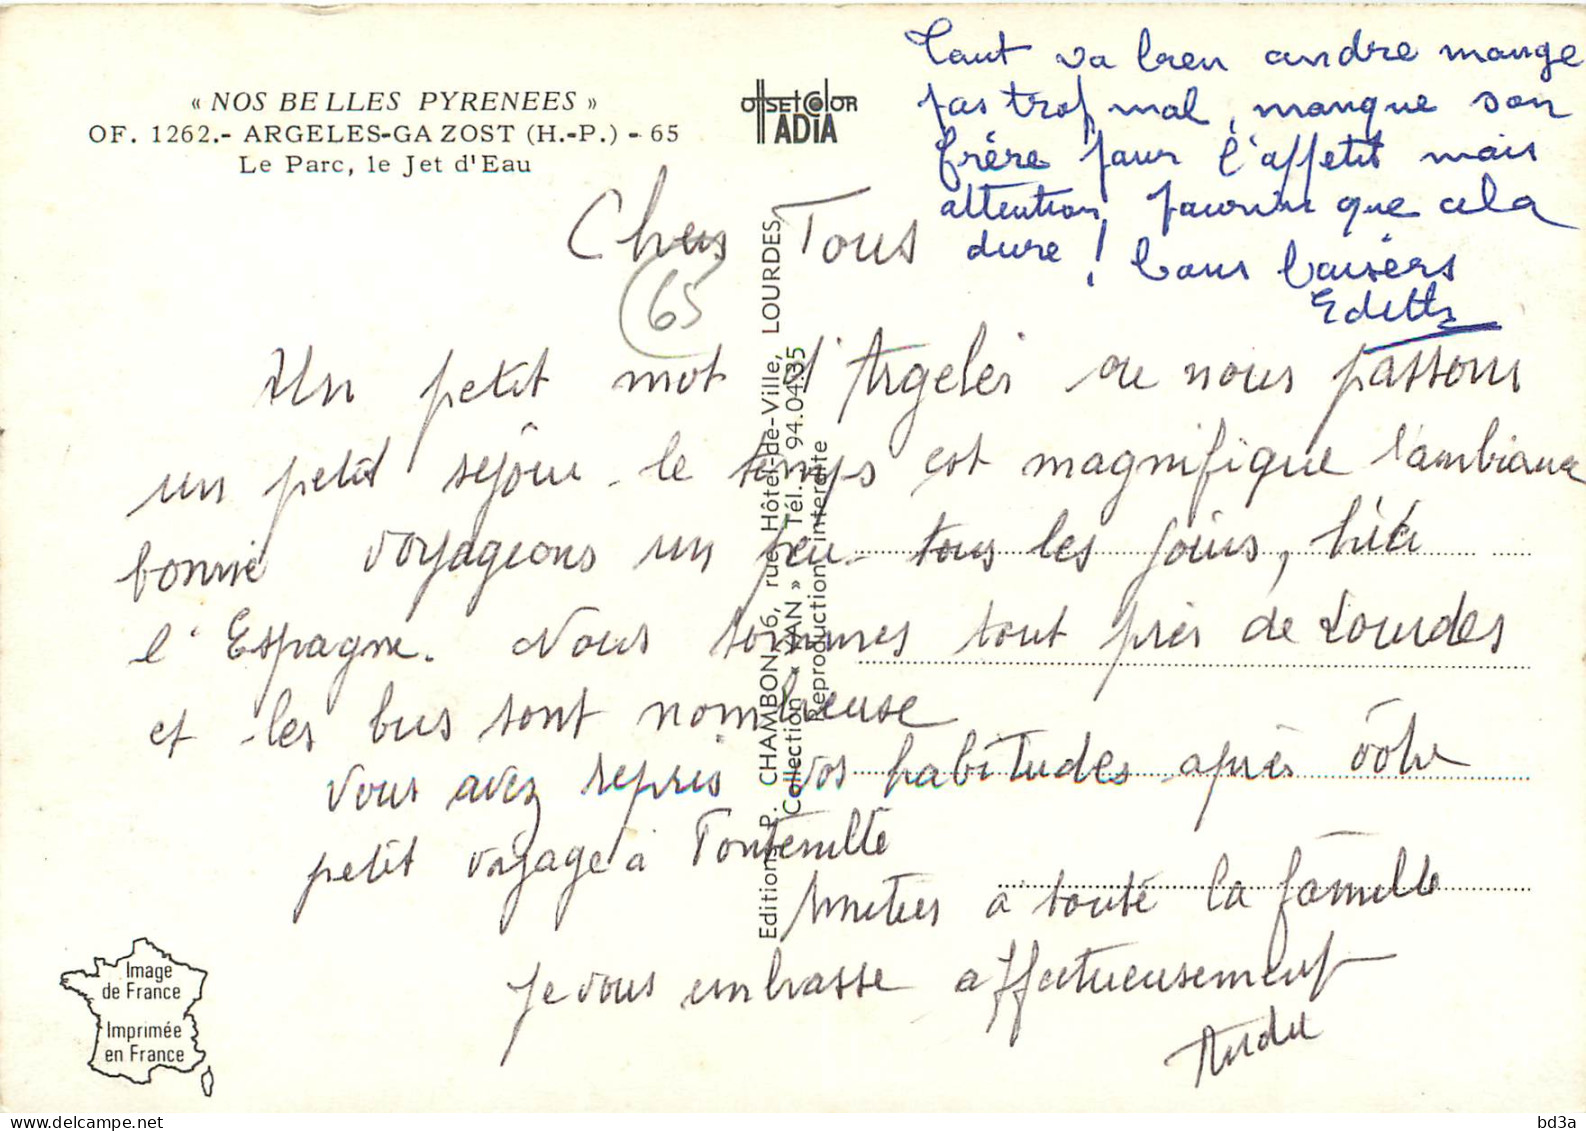 « NOS BELLES PYRENEES »
OF. 1262.- ARGELES-GAZOST (H.-P.) - 65
Le Parc, le Jet d'Eau
OffsetColor
ADIA
Tout va bien andre mange
pas trop mal, manque son
frère pour l'appetit mais
attention, pourvu que cela
dure ! bons baisers
Edith
Chers Tous
65
Un petit mot d'Argelès ou nous passons
un petit séjour le temps est magnifique l'ambiance
bonne voyageons un peu tous les jours, hier
l'Espagne. Nous sommes tout près de Lourdes
et les bus sont nombreuse
Vous avez repris vos habitudes après votre
petit voyage à
Amitiés à toute la famille
Je vous embrasse affectueusement
Andre
Editions P. CHAMBON, 6, rue Hôtel-de-Ville, LOURDES
Collection « YAN » Tél. 94.04.35
Reproduction interdite
Image
de France
Imprimée
en France
bd3a